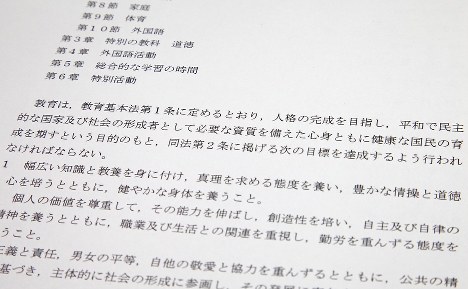 第8節 家庭
第9節 体育
第10節 外国語
第3章 特別の教科 道徳
第4章 外国語活動
第5章 総合的な学習の時間
第6章 特別活動
教育は，教育基本法第1条に定めるとおり，人格の完成を目指し，平和で民主
的な国家及び社会の形成者として必要な資質を備えた心身ともに健康な国民の育
成を期すという目的のもと，同法第2条に掲げる次の目標を達成するよう行われ
なければならない。
1 幅広い知識と教養を身に付け，真理を求める態度を養い，豊かな情操と道徳
心を培うとともに，健やかな身体を養うこと。
個人の価値を尊重して，その能力を伸ばし，創造性を培い，自主及び自律の
精神を養うとともに，職業及び生活との関連を重視し，勤労を重んずる態度を
うこと。
正義と責任，男女の平等，自他の敬愛と協力を重んずるとともに，公共の精
基づき，主体的に社会の形成に参画し，その発展に